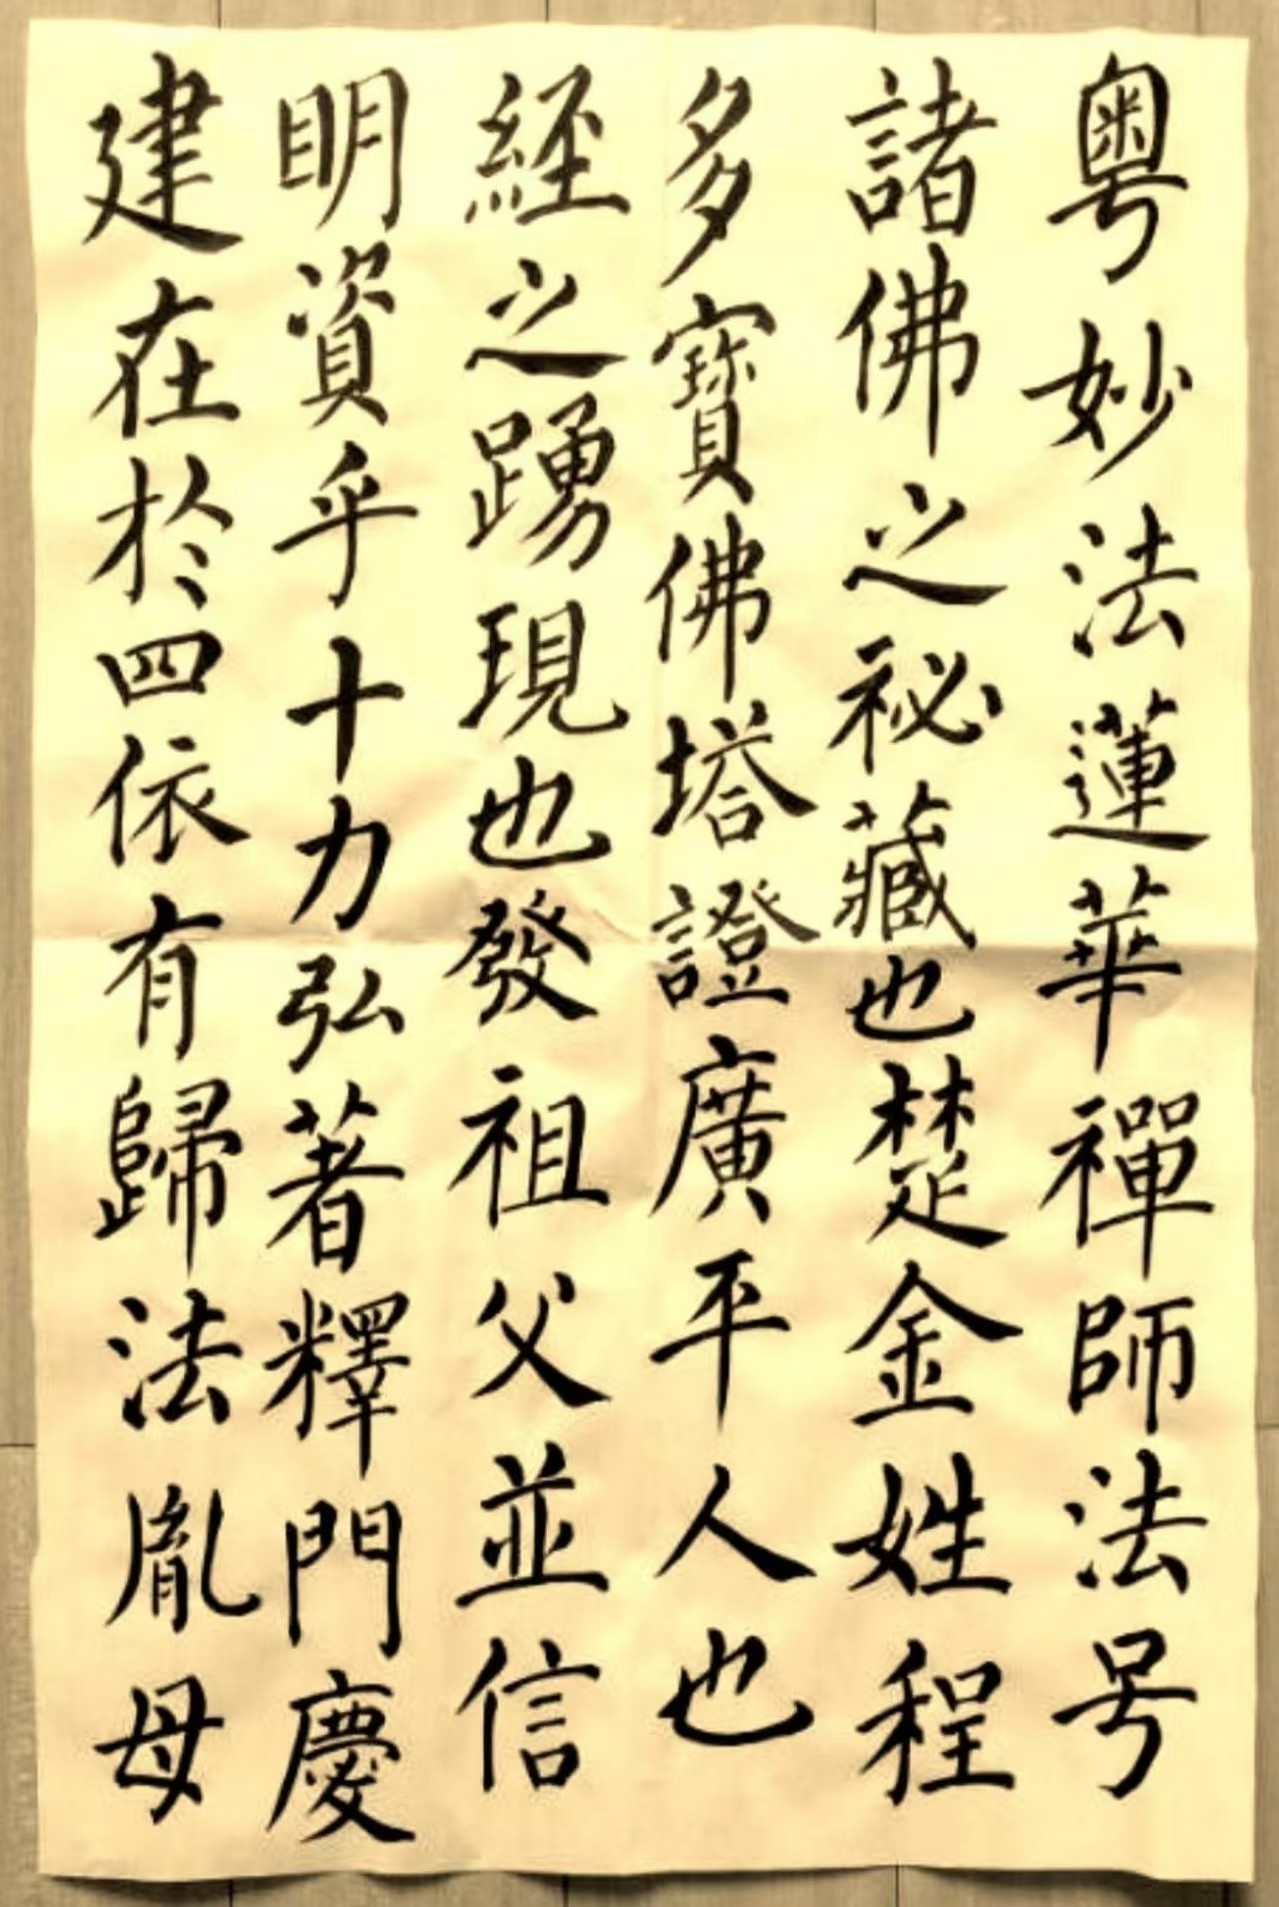 粤妙法蓮華禪師法号
諸佛之祕藏也楚金姓程
多寶佛塔證廣平人也
經之踴現也發祖父並信
明資乎十力弘著釋門慶
建在於四依有歸法胤母